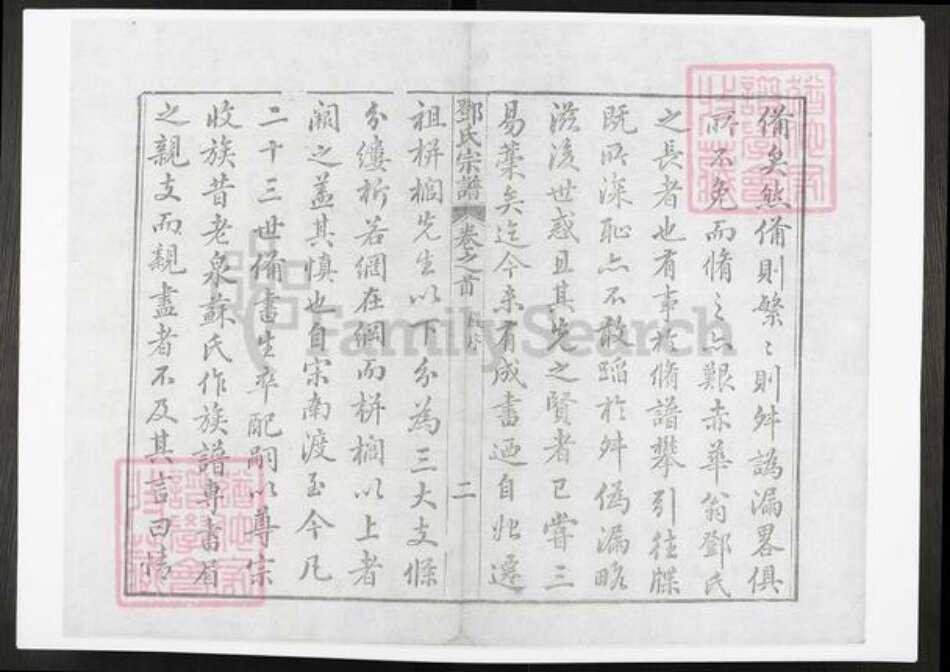 備矣然備則繁〻則舛譌漏畧俱
所不免而脩之亦艱赤華翁鄧氏
之長者也有事於脩譜攀引往牒
既所深恥亦不敢蹈於舛偽漏略
滋後世惑且其先之賢者已嘗三
易藁矣迄今來有成書迺自始遷
鄧氏宗譜 卷之首 二
祖栟櫚先生以下分為三大支條
分縷析若網在綱而栟櫚以上者
闕之蓋其慎也自宋南渡至今凡
二十三世備書生卒配嗣以尊宗
收族昔老泉蘇氏作族譜專書眉
之親支而親盡者不及其言曰情
FamilySearch